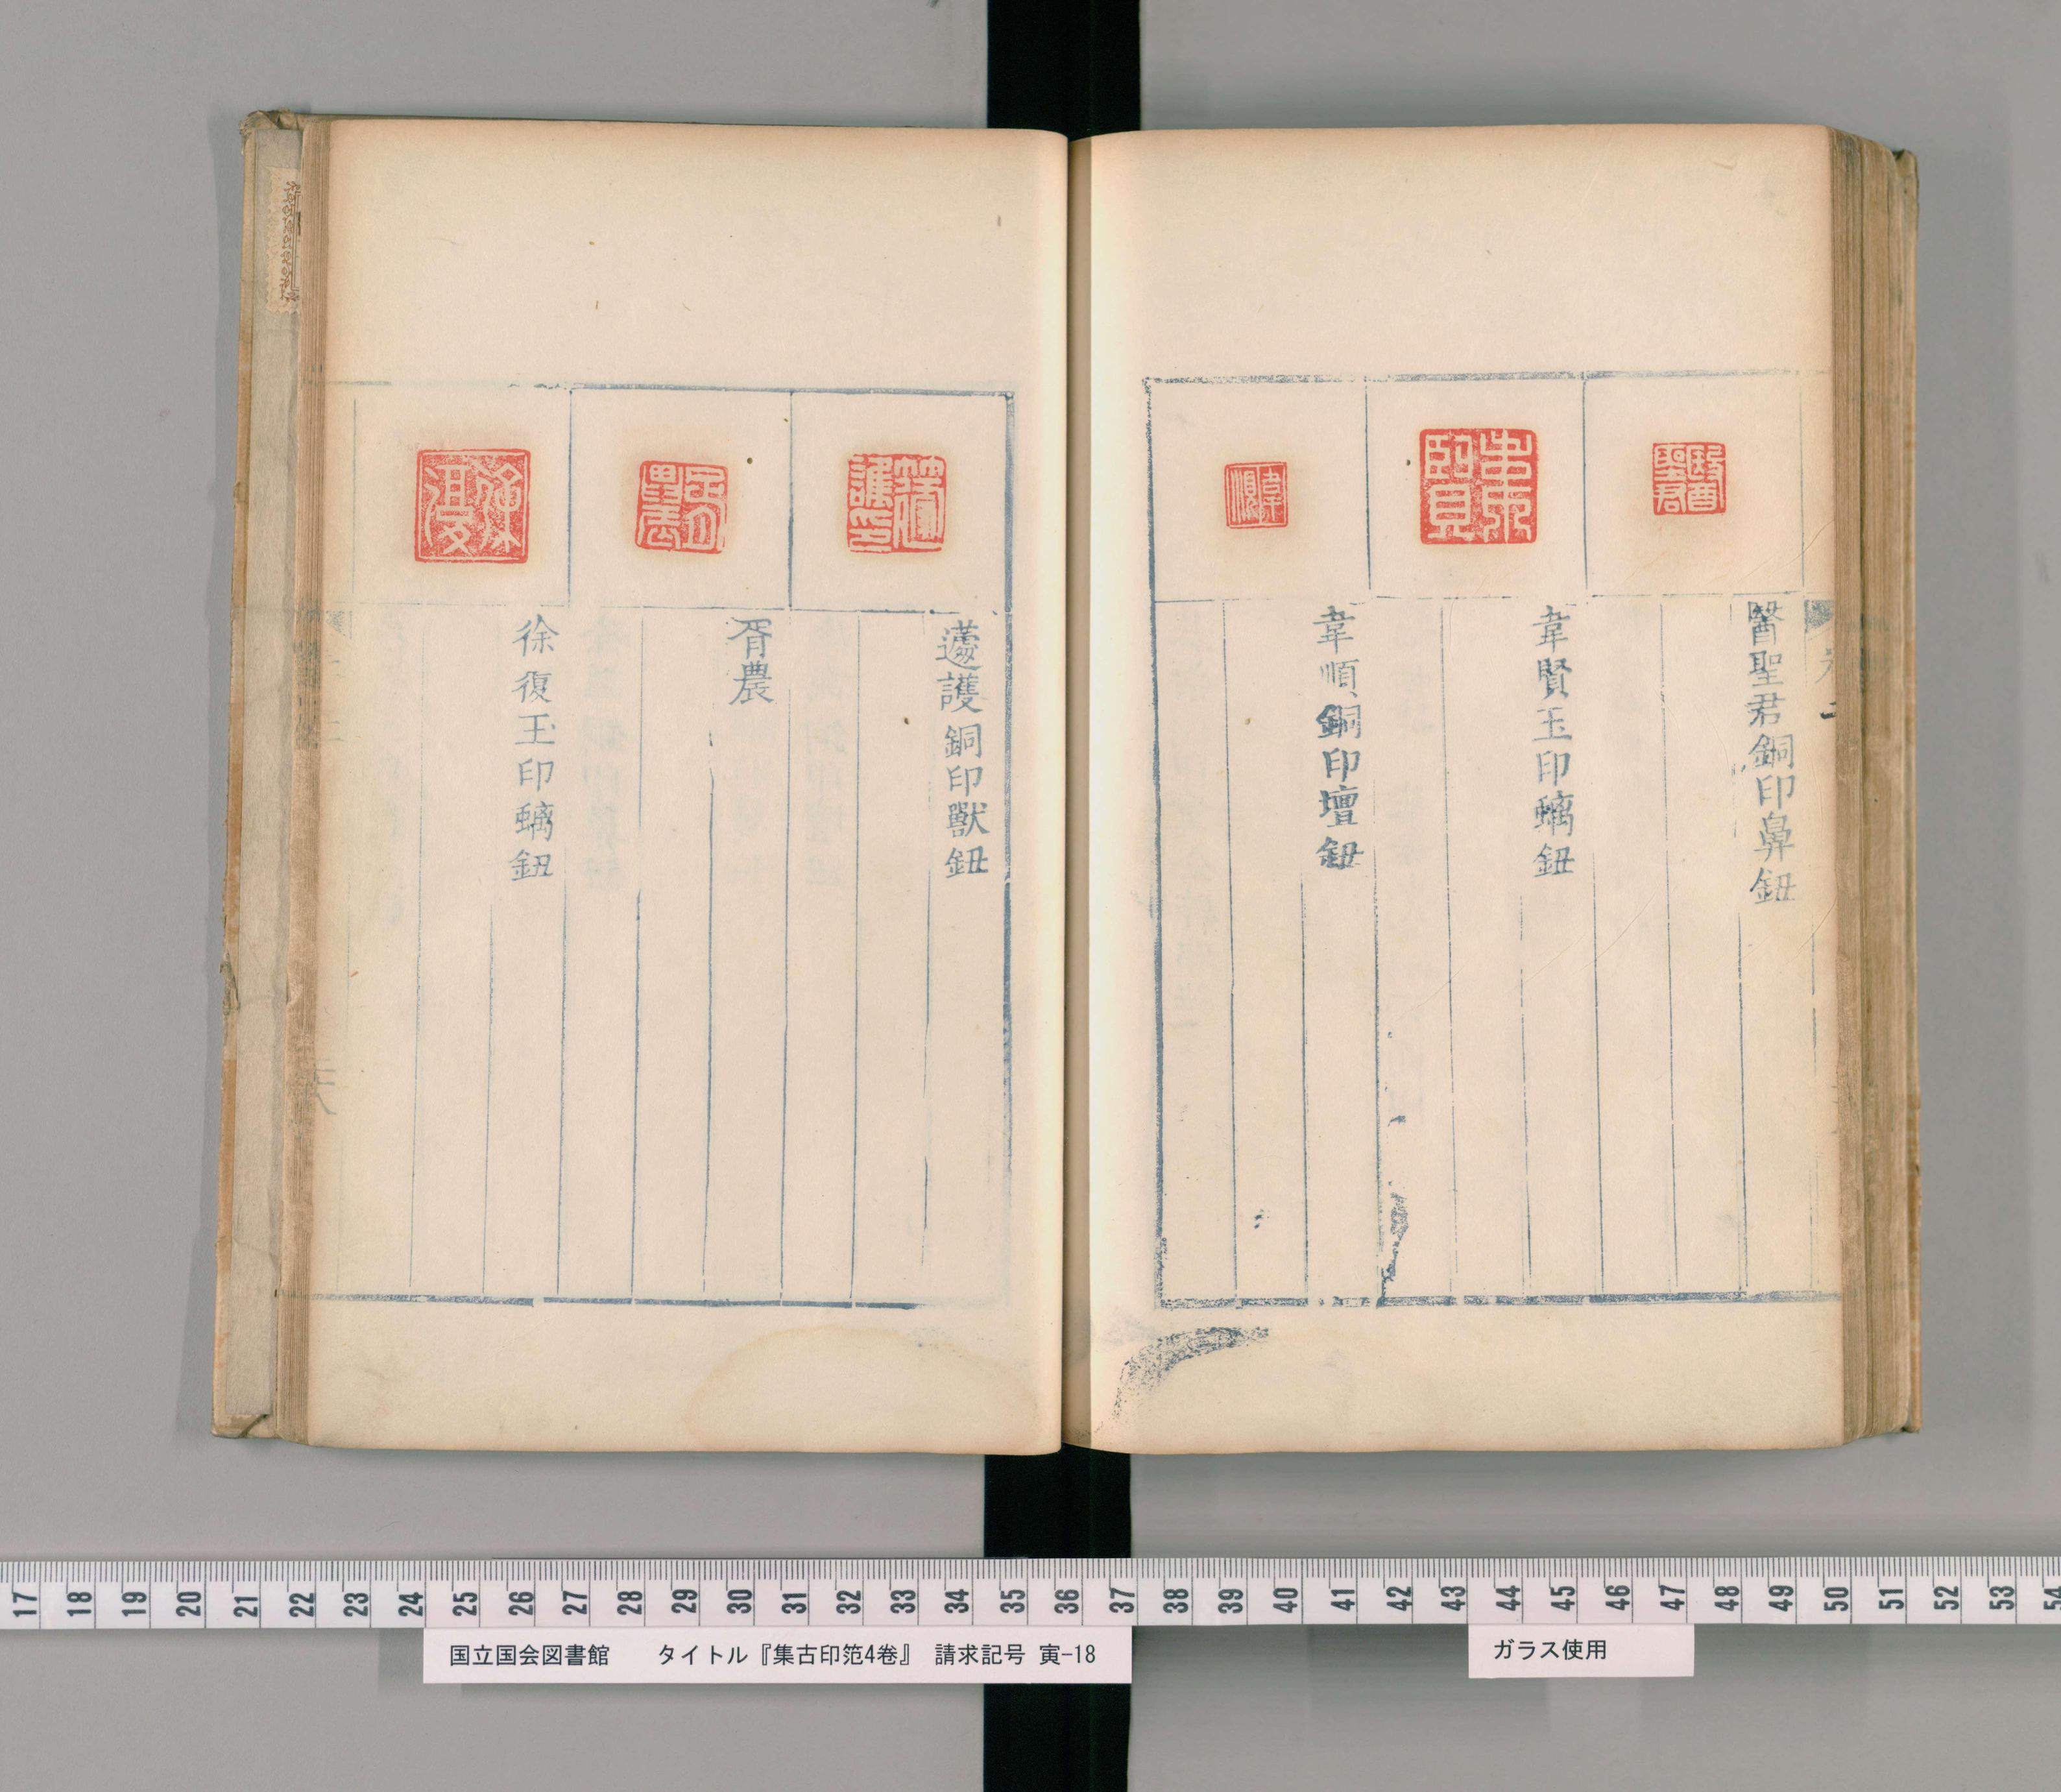 醫聖君銅印鼻鈕
韋賢玉印螭鈕
韋順銅印壇鈕
蘧護銅印獸鈕
胥農
徐復玉印螭鈕
17 18 19 20 21 22 23 24 25 26 27 28 29 30 31 32 33 34 35 36 37 38 39 40 41 42 43 44 45 46 47 48 49 50 51 52 53 54
国立国会図書館 タイトル『集古印笵4巻』 請求記号 寅-18
ガラス使用